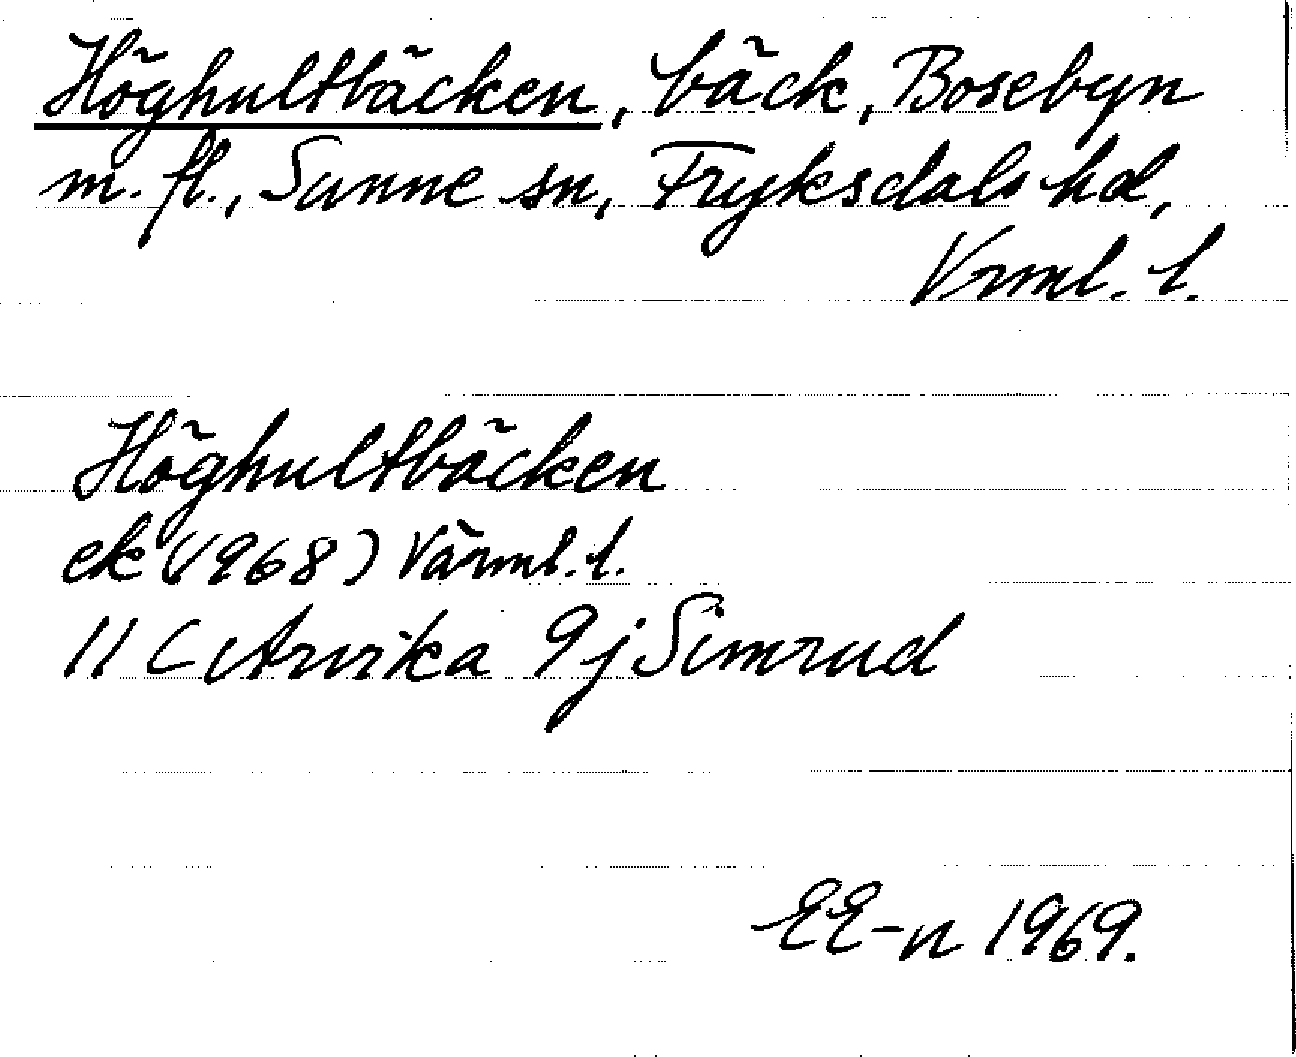 Höghultbäcken, bäck, Bosebyn
m. fl., Sunne sn, Fryksdals hd,
Vrml. l.
Höghultbäcken
ek (1968) Värml. l.
11 C Arvika 9 j Simrud
EE-n 1969.